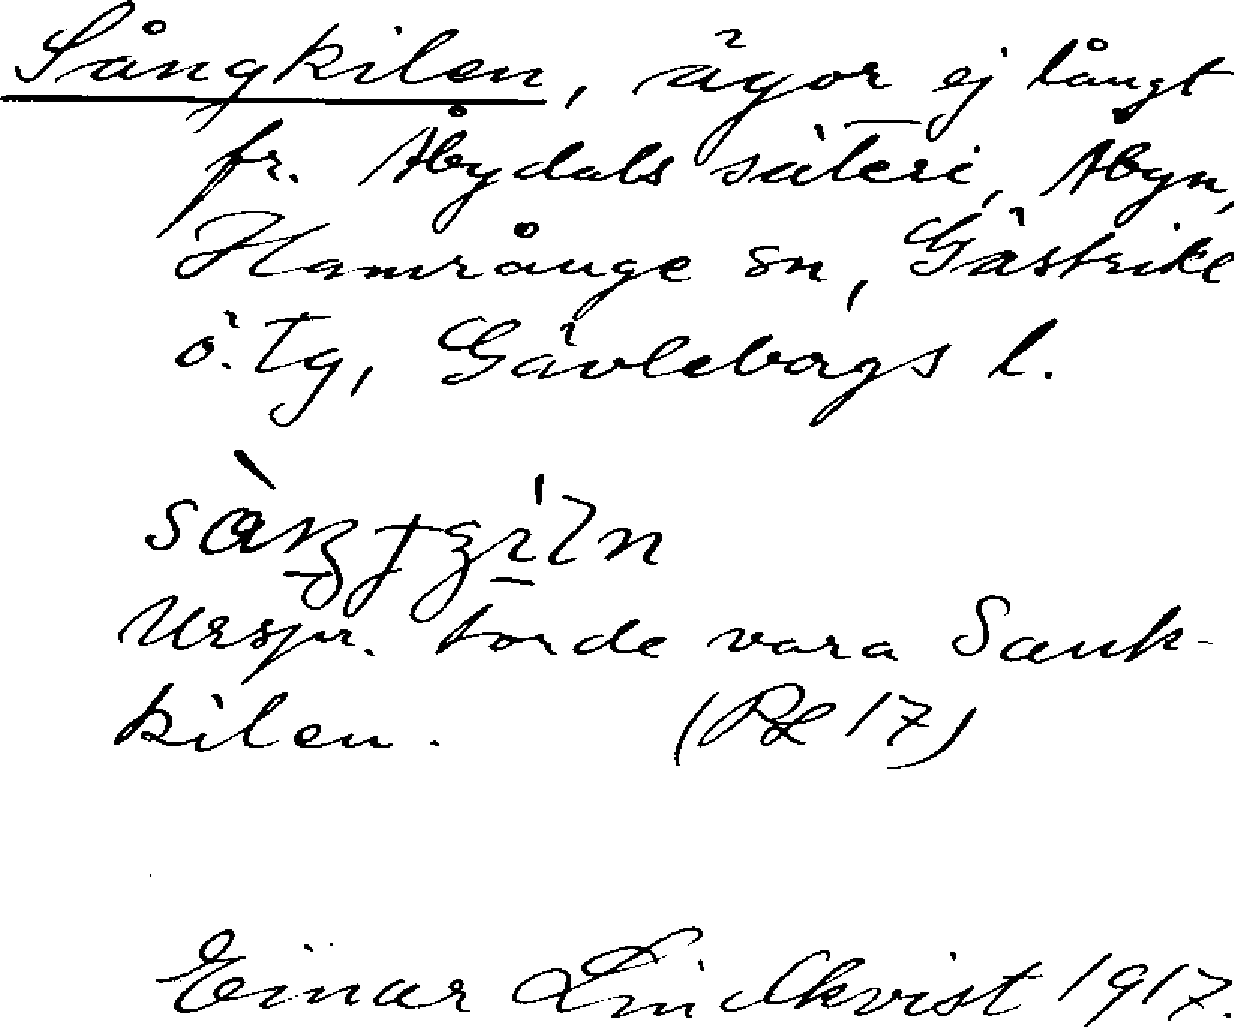 Sångkilen, ägor ej långt
fr. Åbydals säteri, Åbyn,
Hamrånge sn, Gästrike
ö. Tg, Gävleborgs l.
Urspr. torde vara Sank-
kilen. (RL 17)
Einar Lindkvist 1917.